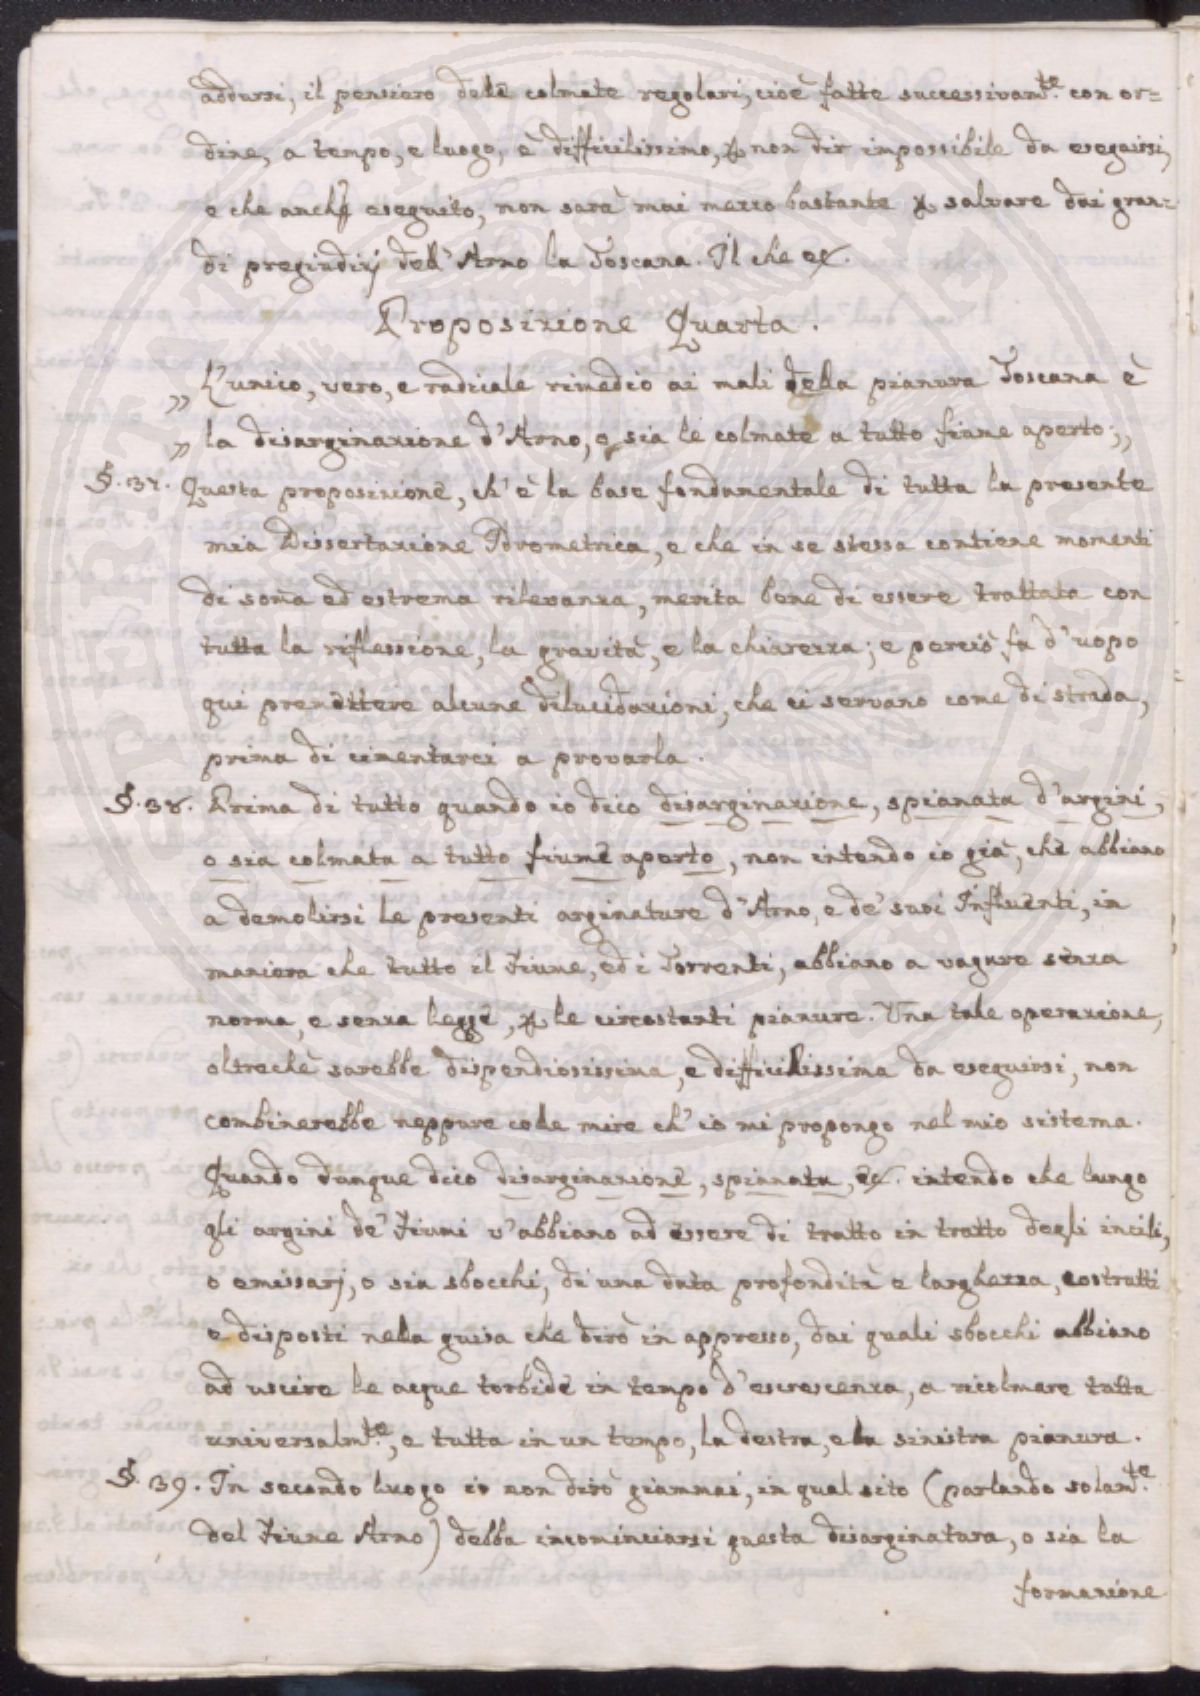 addursi, il pensiero delle colmate regolari, cioè fatte successivam.te con or=
dine, a tempo, e luogo, è difficilissimo, p non dir impossibile da eseguirsi,
e che anche eseguito, non sarà mai mezzo bastante p salvare dai gran=
di pregiudizj dell'Arno la Toscana. Il che ec.
Proposizione Quarta.
„ L'unico, vero, e radicale rimedio ai mali della pianura Toscana è
„ la disarginazione d'Arno, o sia le colmate a tutto fiume aperto;„
§.37. Questa proposizione, ch'è la base fondamentale di tutta la presente
mia Dissertazione Idrometrica, e che in se stessa contiene momenti
di soma ed estrema rilevanza, merita bene di essere trattata con
tutta la riflessione, la gravità, e la chiarezza; e perciò fa d'uopo
qui premettere alcune dilucidazioni, che ci servano come di strada,
prima di cimentarci a provarla.
§.38. Prima di tutto quando io dico disarginazione, spianata d'argini,
o sia colmata a tutto fiume aperto, non intendo io già, che abbiano
a demolirsi le presenti arginature d'Arno, e de' suoi Influenti, in
maniera che tutto il Fiume, ed i Torrenti, abbiano a vagare senza
norma, e senza legge, p le circostanti pianure. Una tale operazione,
oltrechè sarebbe dispendiosissima, e difficilissima da eseguirsi, non
combinerebbe neppure colle mire ch'io mi propongo nel mio sistema.
Quando dunque dico disarginazione, spianata, ec. intendo che lungo
gli argini de' Fiumi v'abbiano ad essere di tratto in tratto degli incili,
o emissarj, o sia sbocchi, di una data profondità e larghezza, costrutti
e disposti nella guisa che dirò in appresso, dai quali sbocchi abbiano
ad uscire le acque torbide in tempo d'escrescenza, a ricolmare tutta
universalm.te, e tutta in un tempo, la destra, e la sinistra pianura.
§.39. In secondo luogo io non dirò giammai, in qual sito (parlando solam.te
del Fiume Arno) debba incominciarsi questa disarginatura, o sia la
formazione
SPERITATI PUBLICAE